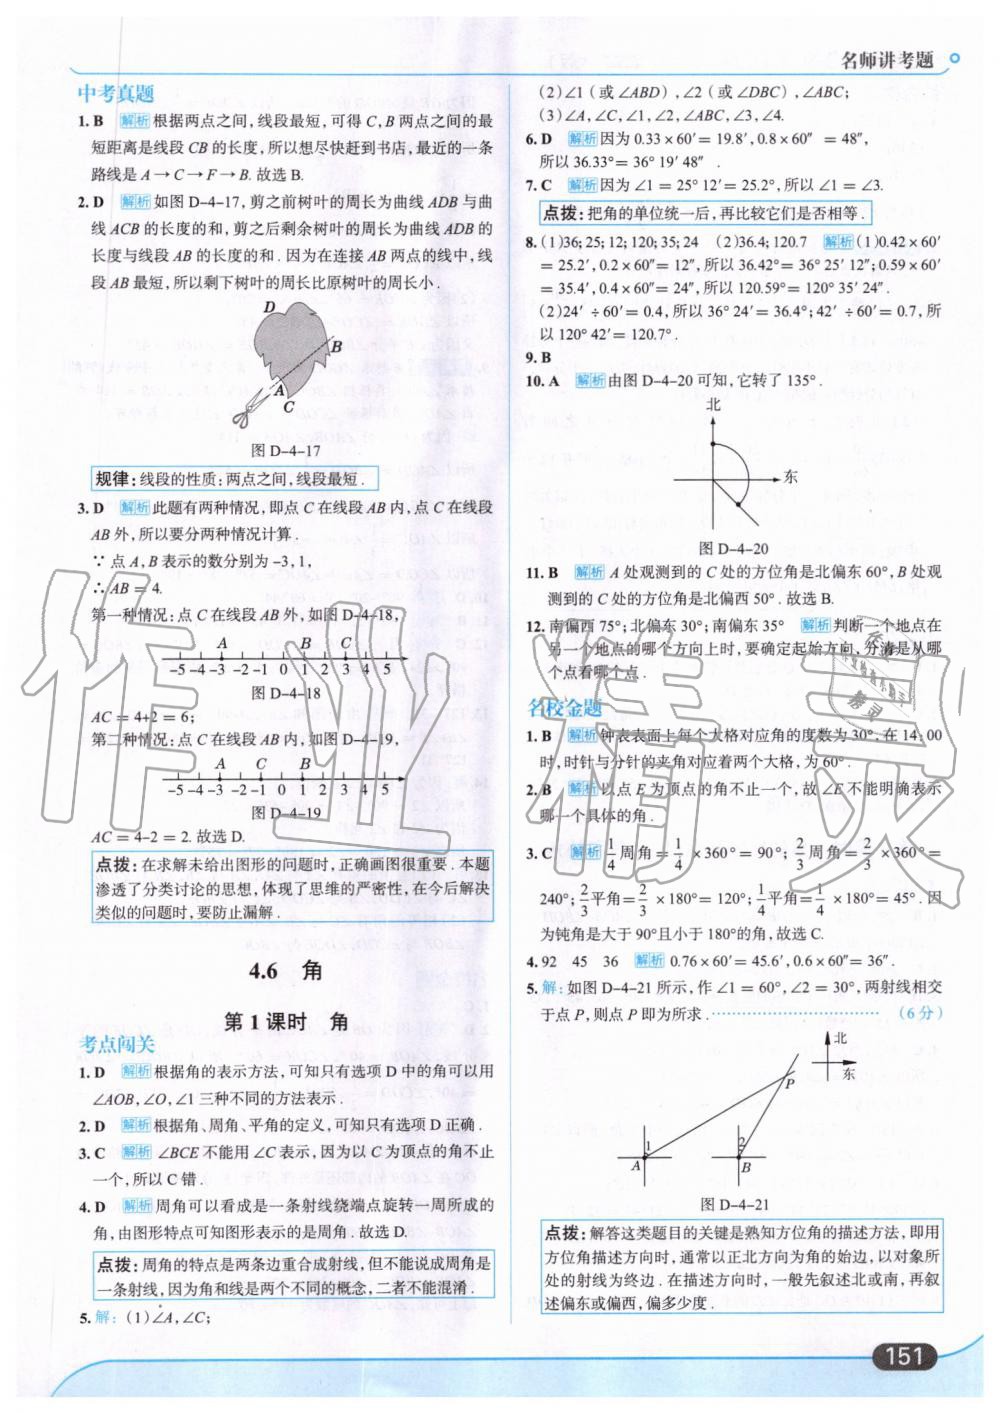 名师讲考题
中考真题
1. B 解析 根据两点之间,线段最短,可得 C,B 两点之间的最
短距离是线段 CB 的长度,所以想尽快赶到书店,最近的一条
路线是 A→C→F→B. 故选 B.
2. D 解析 如图 D-4-17,剪之前树叶的周长为曲线 ADB 与曲
线 ACB 的长度的和,剪之后剩余树叶的周长为曲线 ADB 的
长度与线段 AB 的长度的和. 因为在连接 AB 两点的线中,线
段 AB 最短,所以剩下树叶的周长比原树叶的周长小.
D
B
A
C
图 D-4-17
规律:线段的性质:两点之间,线段最短.
3. D 解析 此题有两种情况,即点 C 在线段 AB 内,点 C 在线段
AB 外,所以要分两种情况计算.
∵ 点 A,B 表示的数分别为 -3,1,
∴ AB = 4.
第一种情况:点 C 在线段 AB 外,如图 D-4-18,
A B C
-5 -4 -3 -2 -1 0 1 2 3 4 5
图 D-4-18
AC = 4+2 = 6;
第二种情况:点 C 在线段 AB 内,如图 D-4-19,
A C B
-5 -4 -3 -2 -1 0 1 2 3 4 5
图 D-4-19
AC = 4-2 = 2. 故选 D.
点拨:在求解未给出图形的问题时,正确画图很重要. 本题
渗透了分类讨论的思想,体现了思维的严密性,在今后解决
类似的问题时,要防止漏解.
4.6 角
第 1 课时 角
考点闯关
1. D 解析 根据角的表示方法,可知只有选项 D 中的角可以用
∠AOB,∠O,∠1 三种不同的方法表示.
2. D 解析 根据角、周角、平角的定义,可知只有选项 D 正确.
3. C 解析 ∠BCE 不能用 ∠C 表示,因为以 C 为顶点的角不止
一个,所以 C 错.
4. D 解析 周角可以看成是一条射线绕端点旋转一周所成的
角,由图形特点可知图形表示的是周角. 故选 D.
点拨:周角的特点是两条边重合成射线,但不能说成周角是
一条射线,因为角和线是两个不同的概念,二者不能混淆.
5. 解: (1)∠A,∠C;
(2)∠1(或 ∠ABD),∠2(或 ∠DBC),∠ABC;
(3)∠A,∠C,∠1,∠2,∠ABC,∠3,∠4.
6. D 解析 因为 0.33×60′= 19.8′,0.8×60″ = 48″,
所以 36.33°= 36° 19′ 48″ .
7. C 解析 因为 ∠1 = 25° 12′ = 25.2°,所以 ∠1 = ∠3.
点拨:把角的单位统一后,再比较它们是否相等.
8. (1)36;25;12;120;35;24 (2)36.4;120.7 解析 (1)0.42×60′
= 25.2′,0.2×60″= 12″,所以 36.42°= 36° 25′ 12″;0.59×60′
= 35.4′,0.4×60″= 24″,所以 120.59°= 120° 35′ 24″.
(2)24′ ÷60′= 0.4,所以 36° 24′= 36.4°;42′ ÷60′= 0.7,所
以 120° 42′= 120.7°.
9. B
10. A 解析 由图 D-4-20 可知,它转了 135°.
北
东
图 D-4-20
11. B 解析 A 处观测到的 C 处的方位角是北偏东 60°,B 处观
测到的 C 处的方位角是北偏西 50°. 故选 B.
12. 南偏西 75°;北偏东 30°;南偏东 35° 解析 判断一个地点在
另一个地点的哪个方向上时,要确定起始方向,分清是从哪
个点看哪个点.
名校金题
1. B 解析 钟表表面上每个大格对应角的度数为 30°,在 14:00
时,时针与分针的夹角对应着两个大格,为 60°.
2. B 解析 以点 E 为顶点的角不止一个,故 ∠E 不能明确表示
哪一个具体的角.
3. C 解析 1/4 周角= 1/4 ×360°= 90°; 2/3 周角= 2/3 ×360°=
240°; 2/3 平角= 2/3 ×180°= 120°; 1/4 平角= 1/4 ×180°= 45°. 因
为钝角是大于 90°且小于 180°的角,故选 C.
4. 92 45 36 解析 0.76×60′= 45.6′,0.6×60″= 36″.
5. 解:如图 D-4-21 所示,作 ∠1 = 60°,∠2 = 30°,两射线相交
于点 P,则点 P 即为所求. ……………………… (6 分)
北
东
P
1
2
A
B
图 D-4-21
点拨:解答这类题目的关键是熟知方位角的描述方法,即用
方位角描述方向时,通常以正北方向为角的始边,以对象所
处的射线为终边. 在描述方向时,一般先叙述北或南,再叙
述偏东或偏西,偏多少度.
151
作业精灵